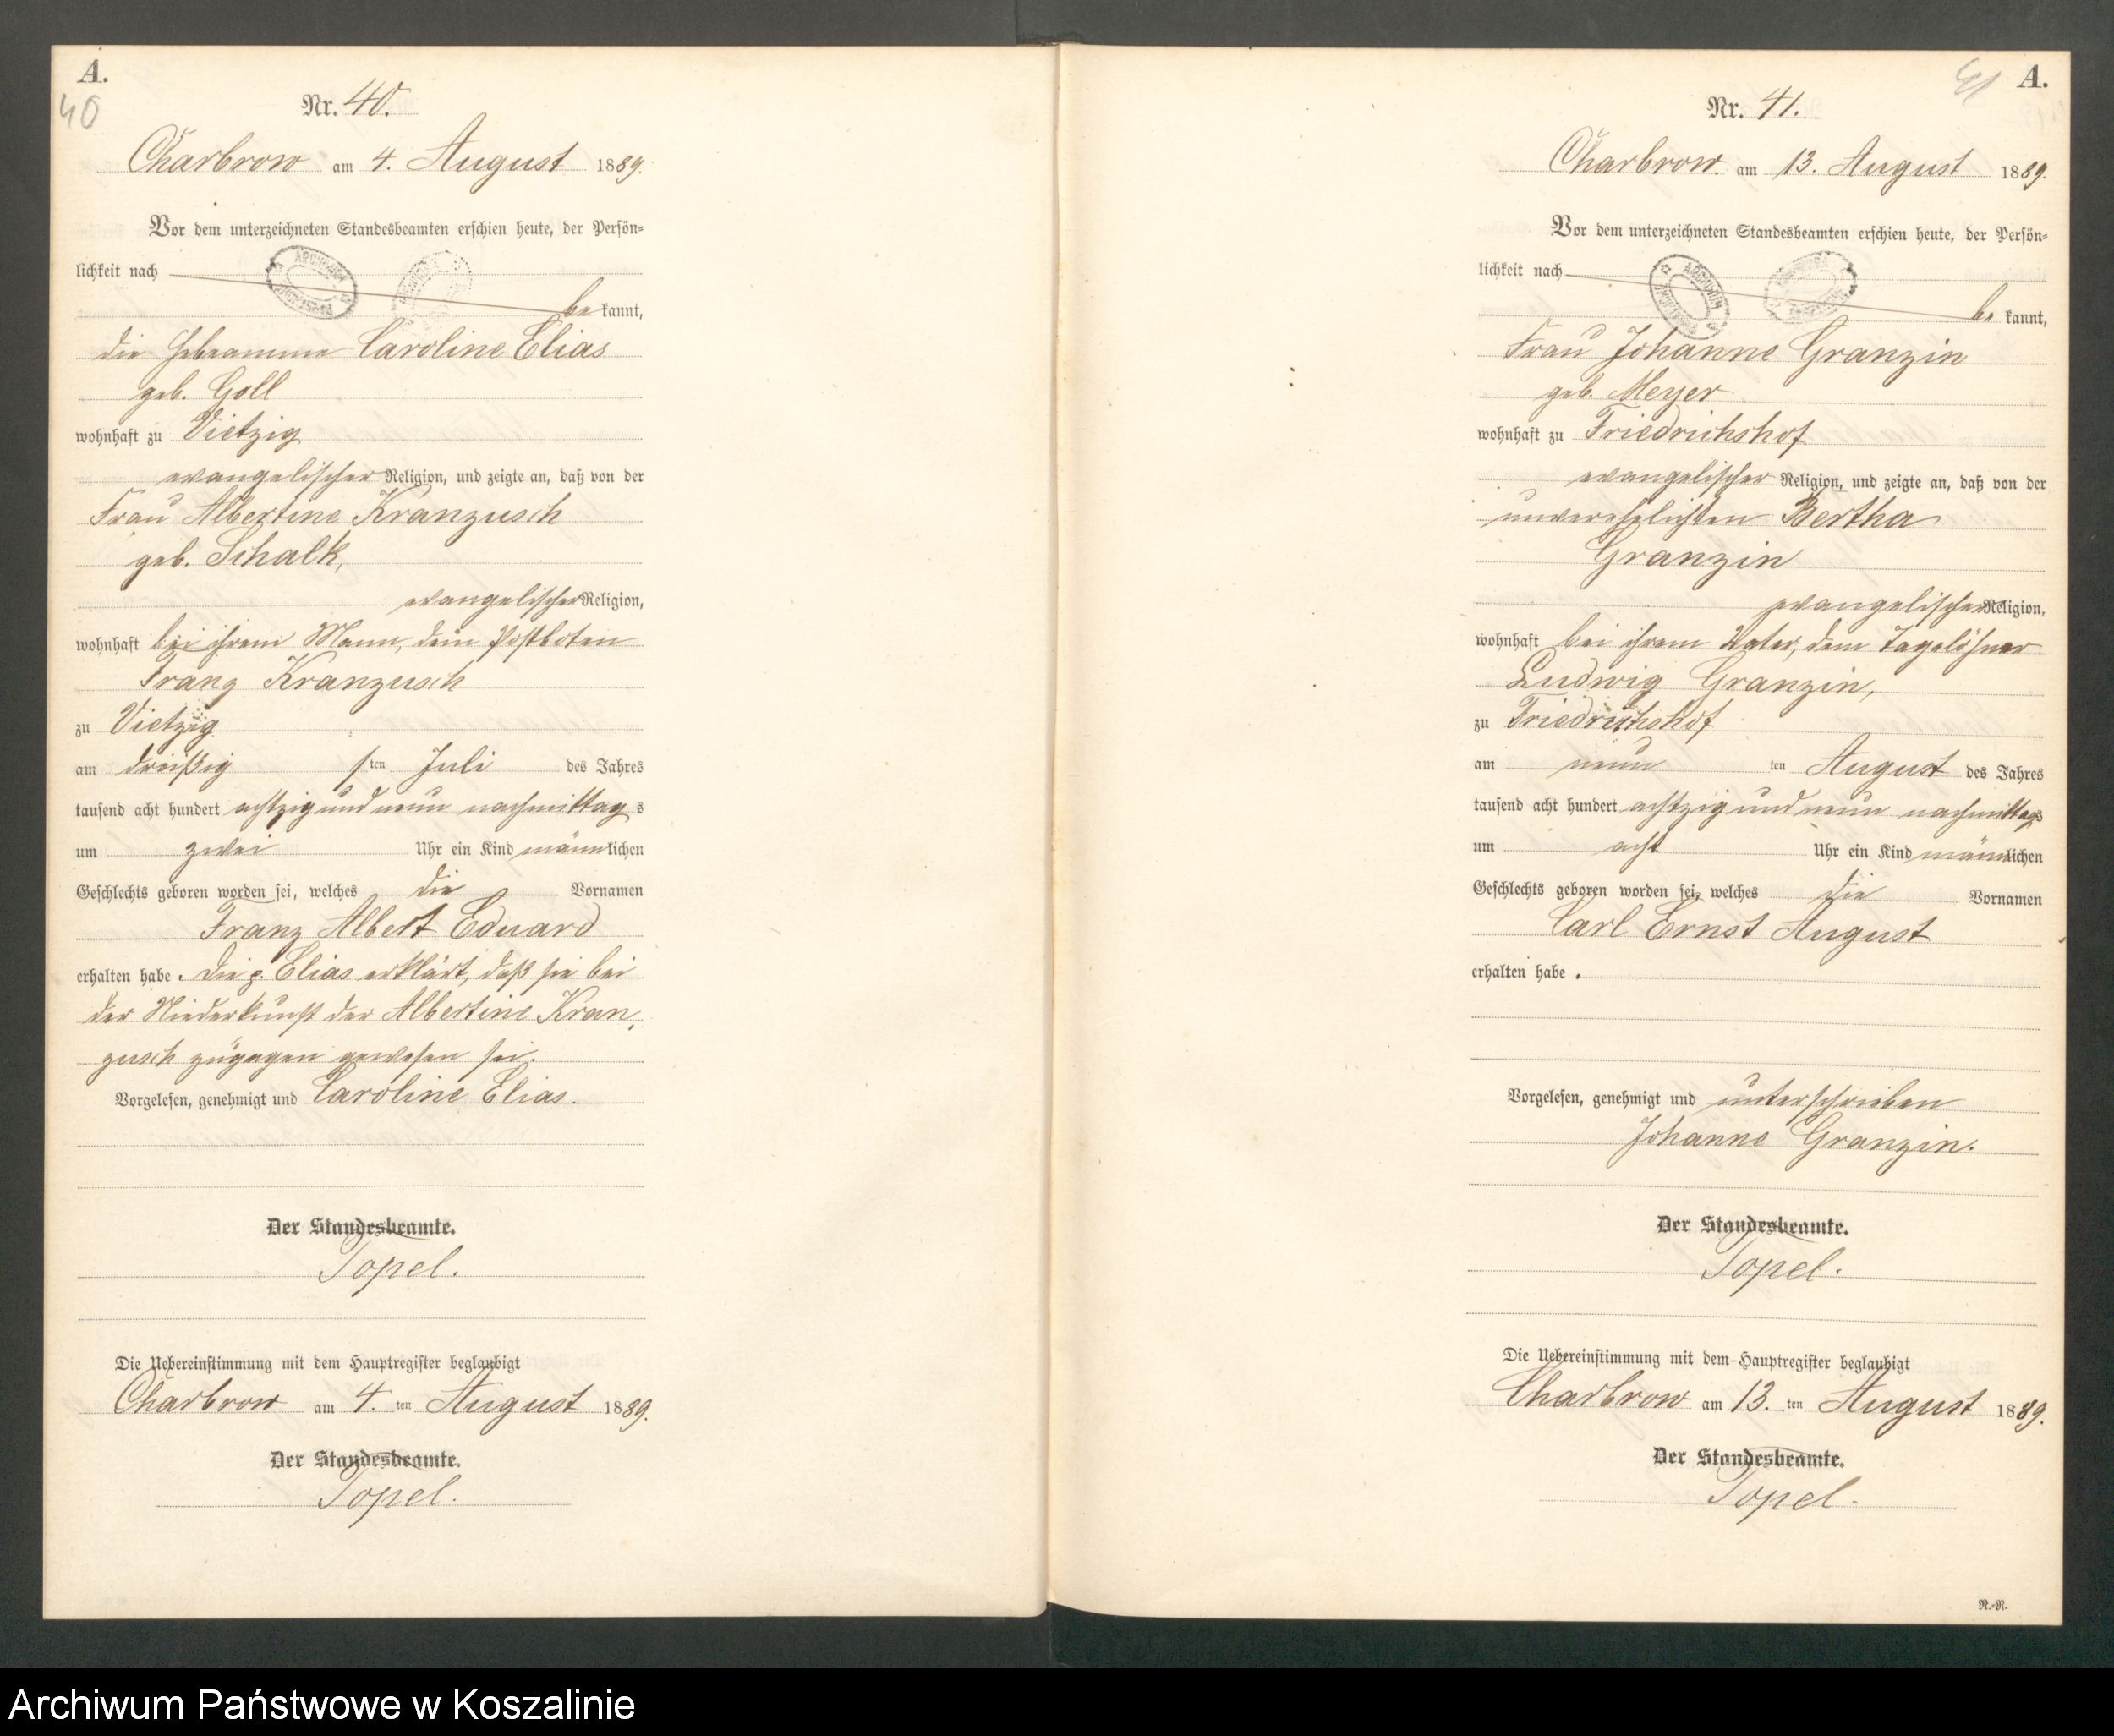 A.
40
Nr. 40.
Charbrow am 4. August 1889.
Vor dem unterzeichneten Standesbeamten erschien heute, der Persön-
lichkeit nach
be kannt,
die Hebeamme Caroline Elias
geb. Goll
wohnhaft zu Vietzig
evangelischer Religion, und zeigte an, daß von der
Frau Albertine Kranzusch
geb. Schalk,
evangelischer Religion,
wohnhaft bei ihrem Mann, dem Postboten
Franz Kranzusch
zu Vietzig
am dreißig sten Juli des Jahres
tausend acht hundert achtzig und neun nachmittag s
um zwei Uhr ein Kind männlichen
Geschlechts geboren worden sei, welches die Vornamen
Franz Albert Eduard
erhalten habe. Die p. Elias erklärt, daß sie bei
der Niederkunft der Albertine Kran-
zusch zugegen gewesen sei.
Vorgelesen, genehmigt und Caroline Elias.
Der Standesbeamte.
Topel.
Die Uebereinstimmung mit dem Hauptregister beglaubigt
Charbrow am 4. ten August 1889.
Der Standesbeamte.
Topel.
41 A.
Nr. 41.
Charbrow. am 13. August 1889.
Vor dem unterzeichneten Standesbeamten erschien heute, der Persön-
lichkeit nach
be kannt,
Frau Johanne Granzin
geb. Meyer
wohnhaft zu Friedrichshof
evangelischer Religion, und zeigte an, daß von der
unverehelichten Bertha
Granzin
evangelischer Religion,
wohnhaft bei ihrem Vater, dem Tagelöhner
Ludwig Granzin,
zu Friedrichshof
am neun ten August des Jahres
tausend acht hundert achtzig und neun nachmittags
um acht Uhr ein Kind männlichen
Geschlechts geboren worden sei, welches die Vornamen
Carl Ernst August
erhalten habe.
Vorgelesen, genehmigt und unterschrieben
Johanne Granzin.
Der Standesbeamte.
Topel.
Die Uebereinstimmung mit dem Hauptregister beglaubigt
Charbrow am 13. ten August 1889.
Der Standesbeamte.
Topel.
R.-R.
Archiwum Państwowe w Koszalinie